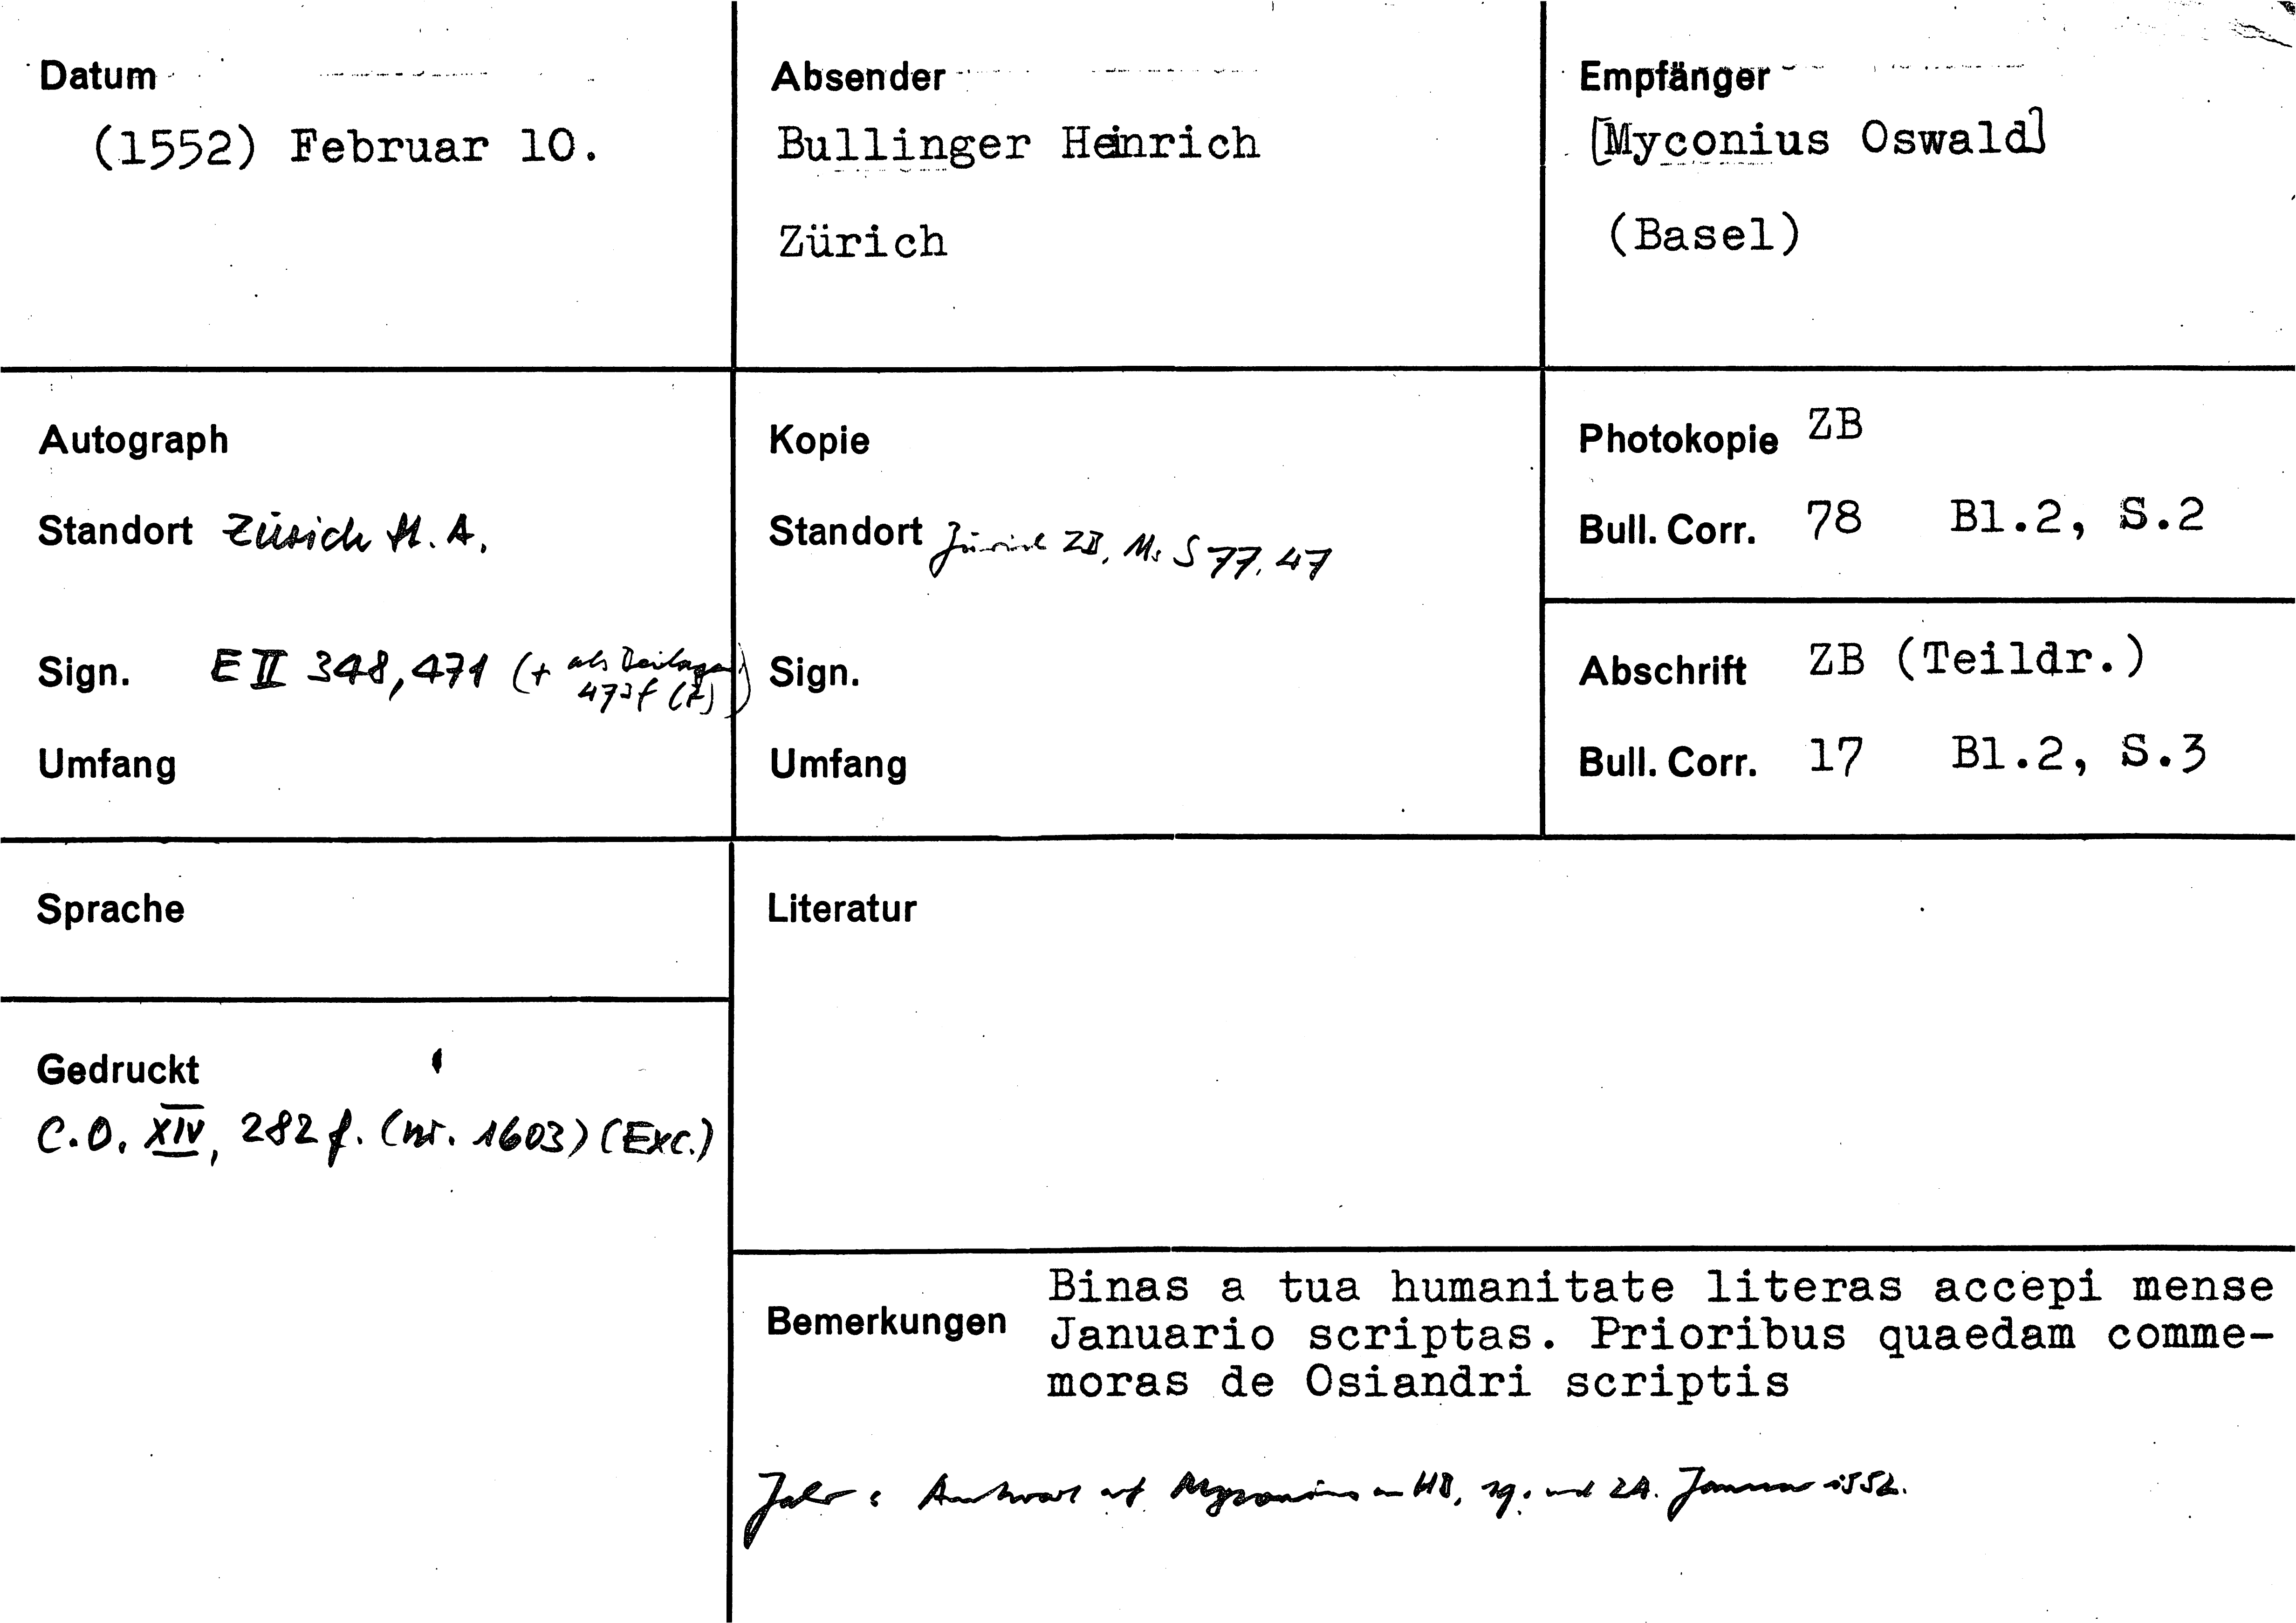 Datum
(1552) Februar 10.
Absender
Bullinger Heinrich
Zürich
Empfänger
[Myconius Oswald]
(Basel)
Autograph
Standort Zürich St. A.
Sign. E II 348,471 (+ als Beilagen
473f (?))
Umfang
Kopie
Standort Zürich ZB, Ms S 77, 47
Sign.
Umfang
Photokopie ZB
Bull. Corr. 78 Bl.2, S.2
Abschrift ZB (Teildr.)
Bull. Corr. 17 Bl.2, S.3
Sprache
Literatur
Gedruckt
C.O. XIV, 282 f. (nr. 1603) (Exc.)
Bemerkungen
Binas a tua humanitate literas accepi mense
Januario scriptas. Prioribus quaedam comme-
moras de Osiandri scriptis
Jahr: Antwort auf Myconius an HB, 19. und 24. Januar 1552.